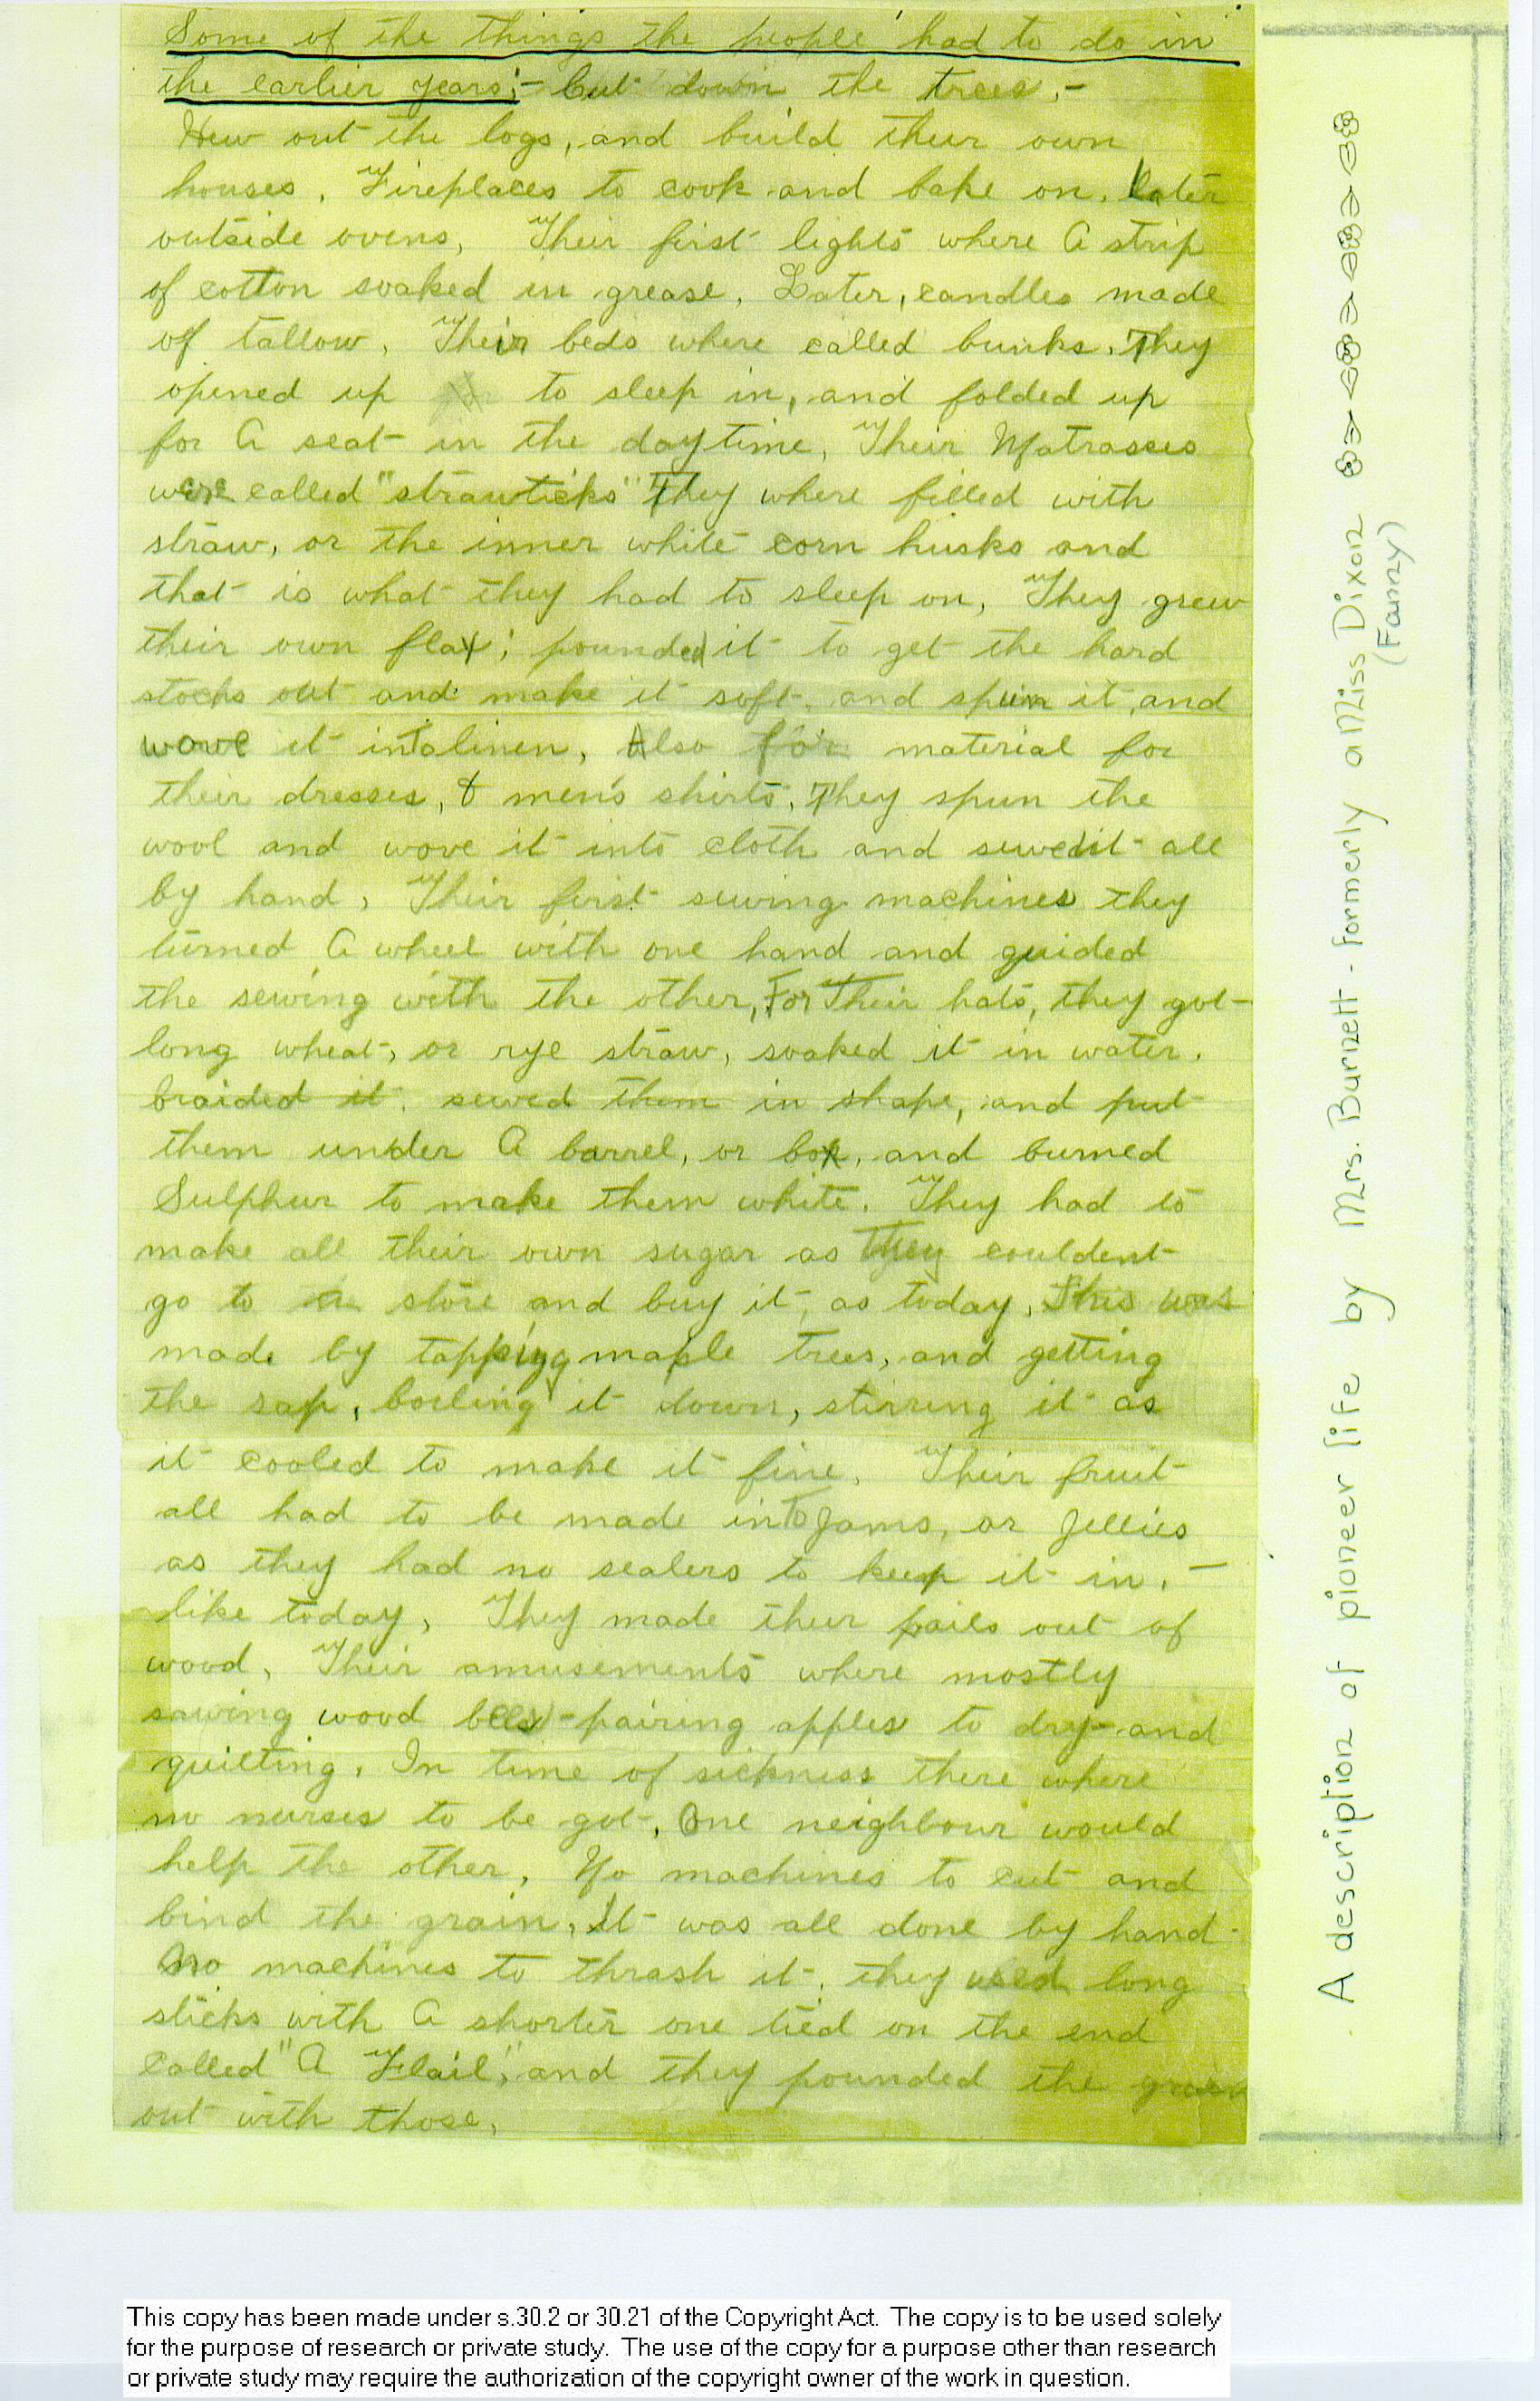 Some of the things the people had to do in
the earlier years;- Cut down the trees,-
Hew out the logs, and build their own
houses. Fireplaces to cook and bake on. Later
outside ovens, Their first lights where A strip
of cotton soaked in grease. Later, candles made
of tallow. Their beds where called bunks. They
opened up to sleep in, and folded up
for A seat in the daytime, Their Matrasses
were called "strawticks" They where filled with
straw, or the inner white corn husks and
that is what they had to sleep on, They grew
their own flax; pounded it to get the hard
stocks out and make it soft, and spun it, and
wove it into linen, Also for material for
their dresses, & men's shirts, They spun the
wool and wove it into cloth and sewed it all
by hand, Their first sewing machines they
turned A wheel with one hand and guided
the sewing with the other, For Their hats, they got
long wheat, or rye straw, soaked it in water.
braided it, sewed them in shape, and put
them under A barrel, or box, and burned
Sulphur to make them white. They had to
make all their own sugar as They couldent
go to a store and buy it, as today. This was
made by tapping maple trees, and getting
the sap, boiling it down, stirring it as
it cooled to make it fine. Their fruit
all had to be made into Jams, or Jellies
as they had no sealers to keep it in. -
like today, They made their pails out of
wood, Their amusements where mostly
sawing wood bees - pairing apples to dry - and
quilting. In time of sickness there where
no nurses to be got, One neighbour would
help the other, No machines to cut and
bind the grain, It was all done by hand -
No machines to thrash it, they used long
sticks with A shorter one tied on the end
called "A Flail," and they pounded the grain
out with those,
A description of pioneer life by Mrs. Burnett - formerly Miss Dixon
(Fanny)
This copy has been made under s.30.2 or 30.21 of the Copyright Act. The copy is to be used solely
for the purpose of research or private study. The use of the copy for a purpose other than research
or private study may require the authorization of the copyright owner of the work in question.